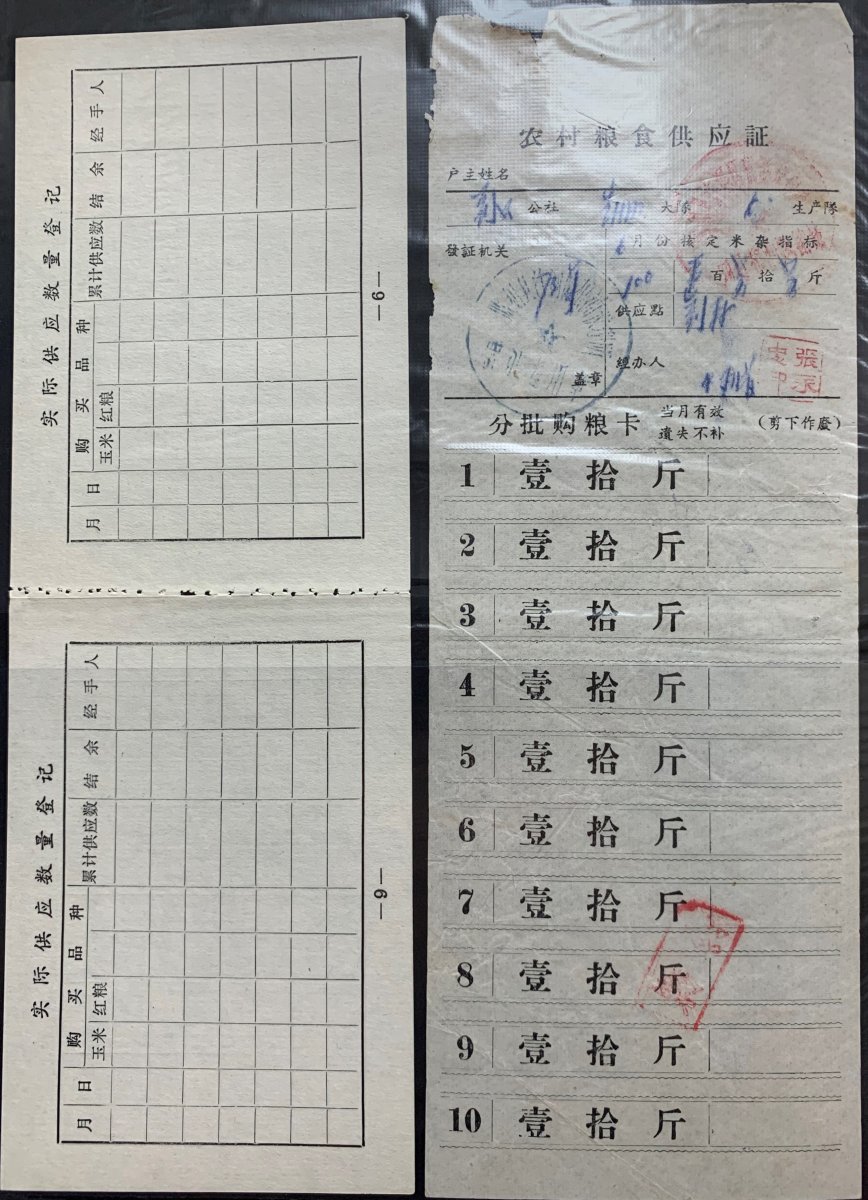 实际供应数量登记
月 日 购买品种 累计供应数 结余 经手人
玉米 红粮
—6—
实际供应数量登记
月 日 购买品种 累计供应数 结余 经手人
玉米 红粮
—9—
农村粮食供应証
户主姓名
公社 大队 生产队
發証机关
月份核定米杂指标
百 拾 斤
供应點
盖章
经办人
分批购粮卡 当月有效 遺失不补 (剪下作廢)
1 壹拾斤
2 壹拾斤
3 壹拾斤
4 壹拾斤
5 壹拾斤
6 壹拾斤
7 壹拾斤
8 壹拾斤
9 壹拾斤
10 壹拾斤